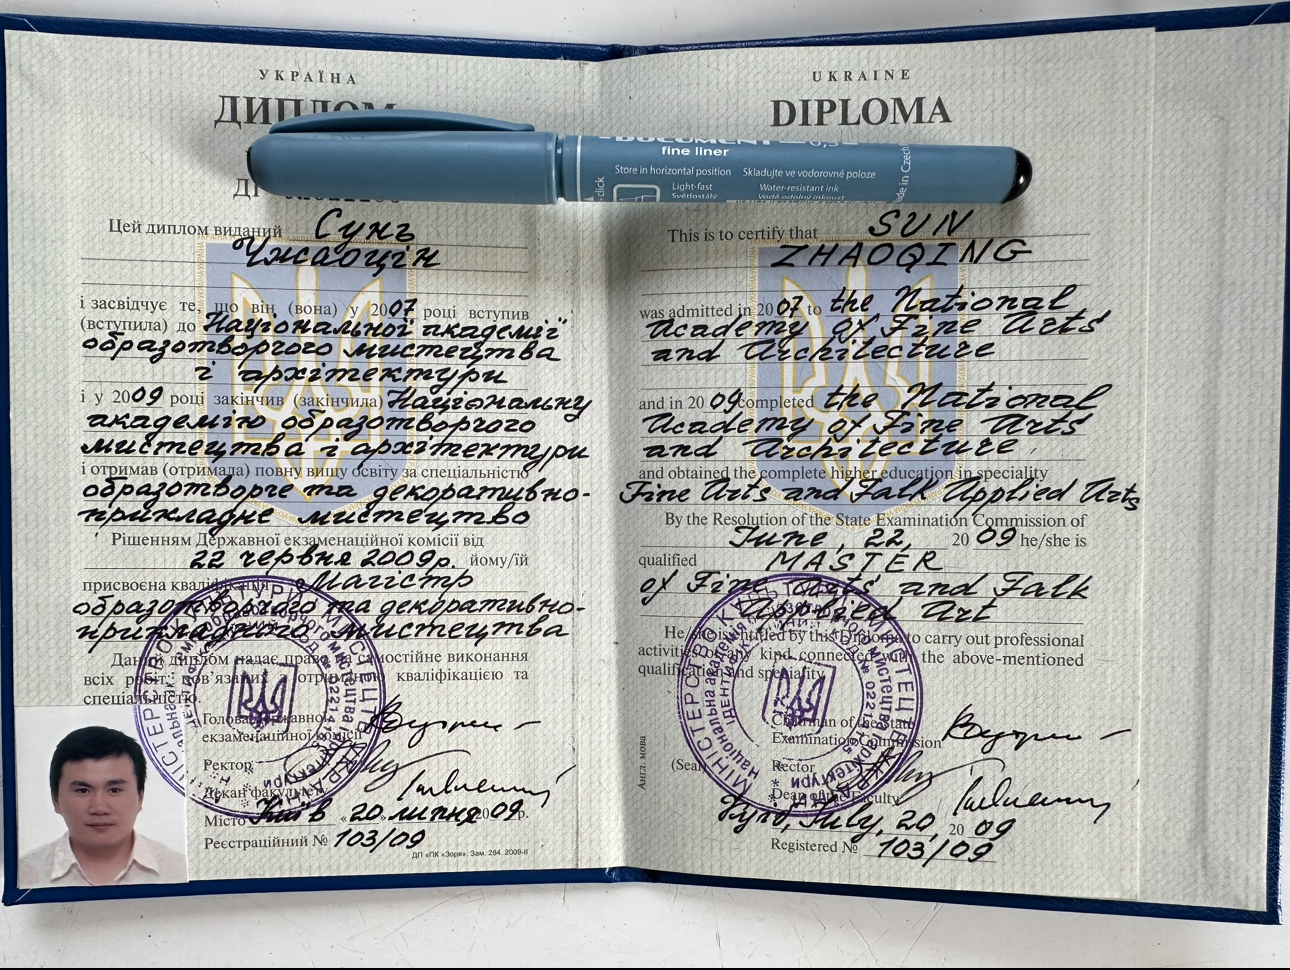 УКРАЇНА
ДИПЛОМ
Цей диплом виданий Сунь
Чжаоцін
і засвідчує те, що він (вона) у 2007 році вступив
(вступила) до Національної академії
образотворчого мистецтва
і архітектури
і у 2009 році закінчив (закінчила) Національну
академію образотворчого
мистецтва і архітектури
і отримав (отримала) повну вищу освіту за спеціальністю
образотворче та декоративно-
прикладне мистецтво
Рішенням Державної екзаменаційної комісії від
22 червня 2009р. йому/їй
присвоєна кваліфікація Магістр
образотворчого та декоративно-
прикладного мистецтва
Даний диплом надає право на самостійне виконання
всіх робіт, пов'язаних з отриманою кваліфікацією та
спеціальністю.
Голова Державної
екзаменаційної комісії
Ректор
Декан факультету
Місто Київ «20» липня 2009р.
Реєстраційний № 103/09
ДП «ПК «Зоря». Зам. 284. 2009-II
UKRAINE
DIPLOMA
DOCUMENT
fine liner
Store in horizontal position Skladujte ve vodorovné poloze
Light-fast Water-resistant ink
Světlostálý Vodě odolný inkoust
click
ade in Czech
This is to certify that SUN
ZHAOQING
was admitted in 2007 to the National
Academy of Fine Arts
and Architecture
and in 2009 completed the National
Academy of Fine Arts
and Architecture
and obtained the complete higher education in speciality
Fine Arts and Falk Applied Arts
By the Resolution of the State Examination Commission of
June, 22, 2009 he/she is
qualified MASTER
of Fine Arts and Falk
Applied Art
He/she is entitled by this Diploma to carry out professional
activities of any kind connected with the above-mentioned
qualification and speciality.
Chairman of the State
Examination Commission
(Seal)
Rector
Dean of the Faculty
Kyiv, July, 20, 2009
Registered № 103/09
Англ. мова